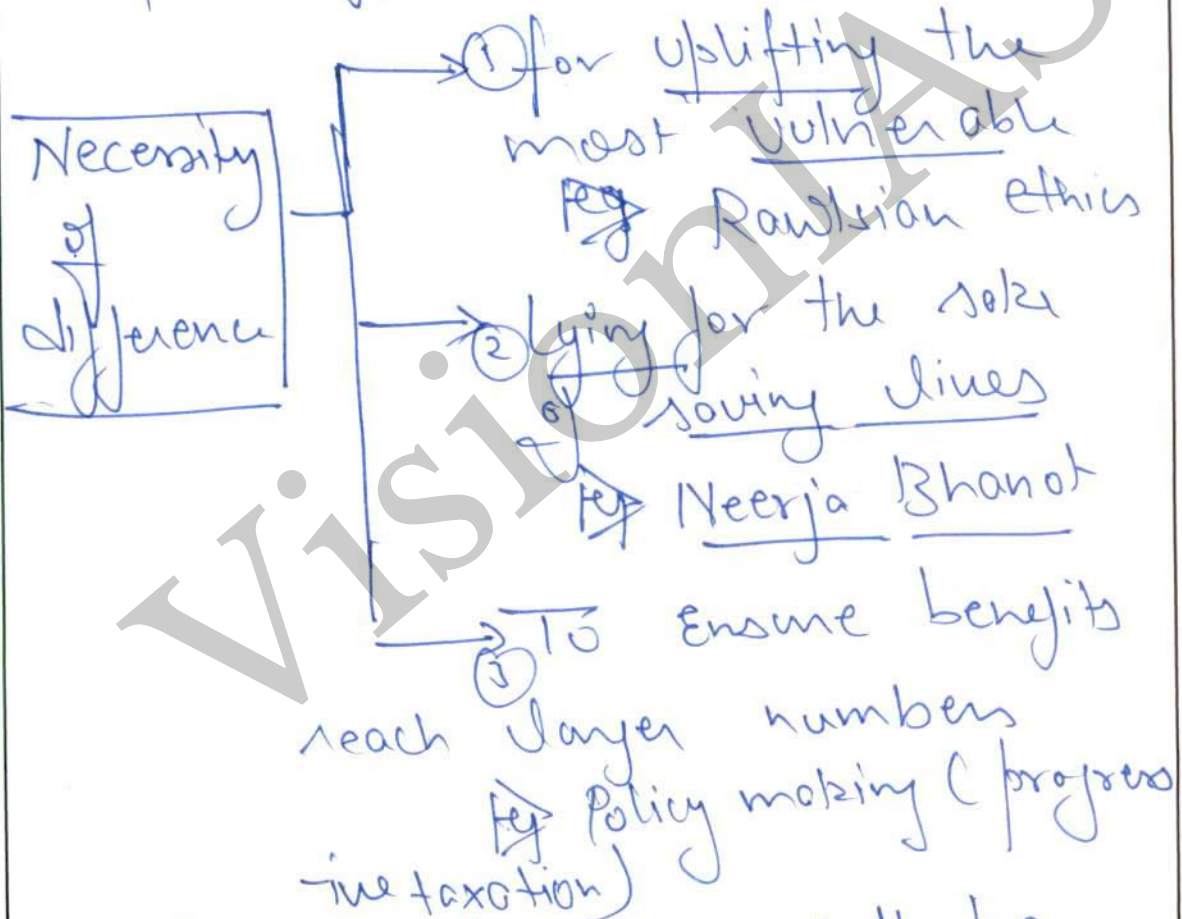 Necessity
of
difference
① for uplifting the
most vulnerable
eg Rawlsian ethics
② lying for the sake
of saving lives
eg Neerja Bhanot
③ To Ensure benefits
reach larger numbers
eg Policy making (progress
-ive taxation)
VisionIAS